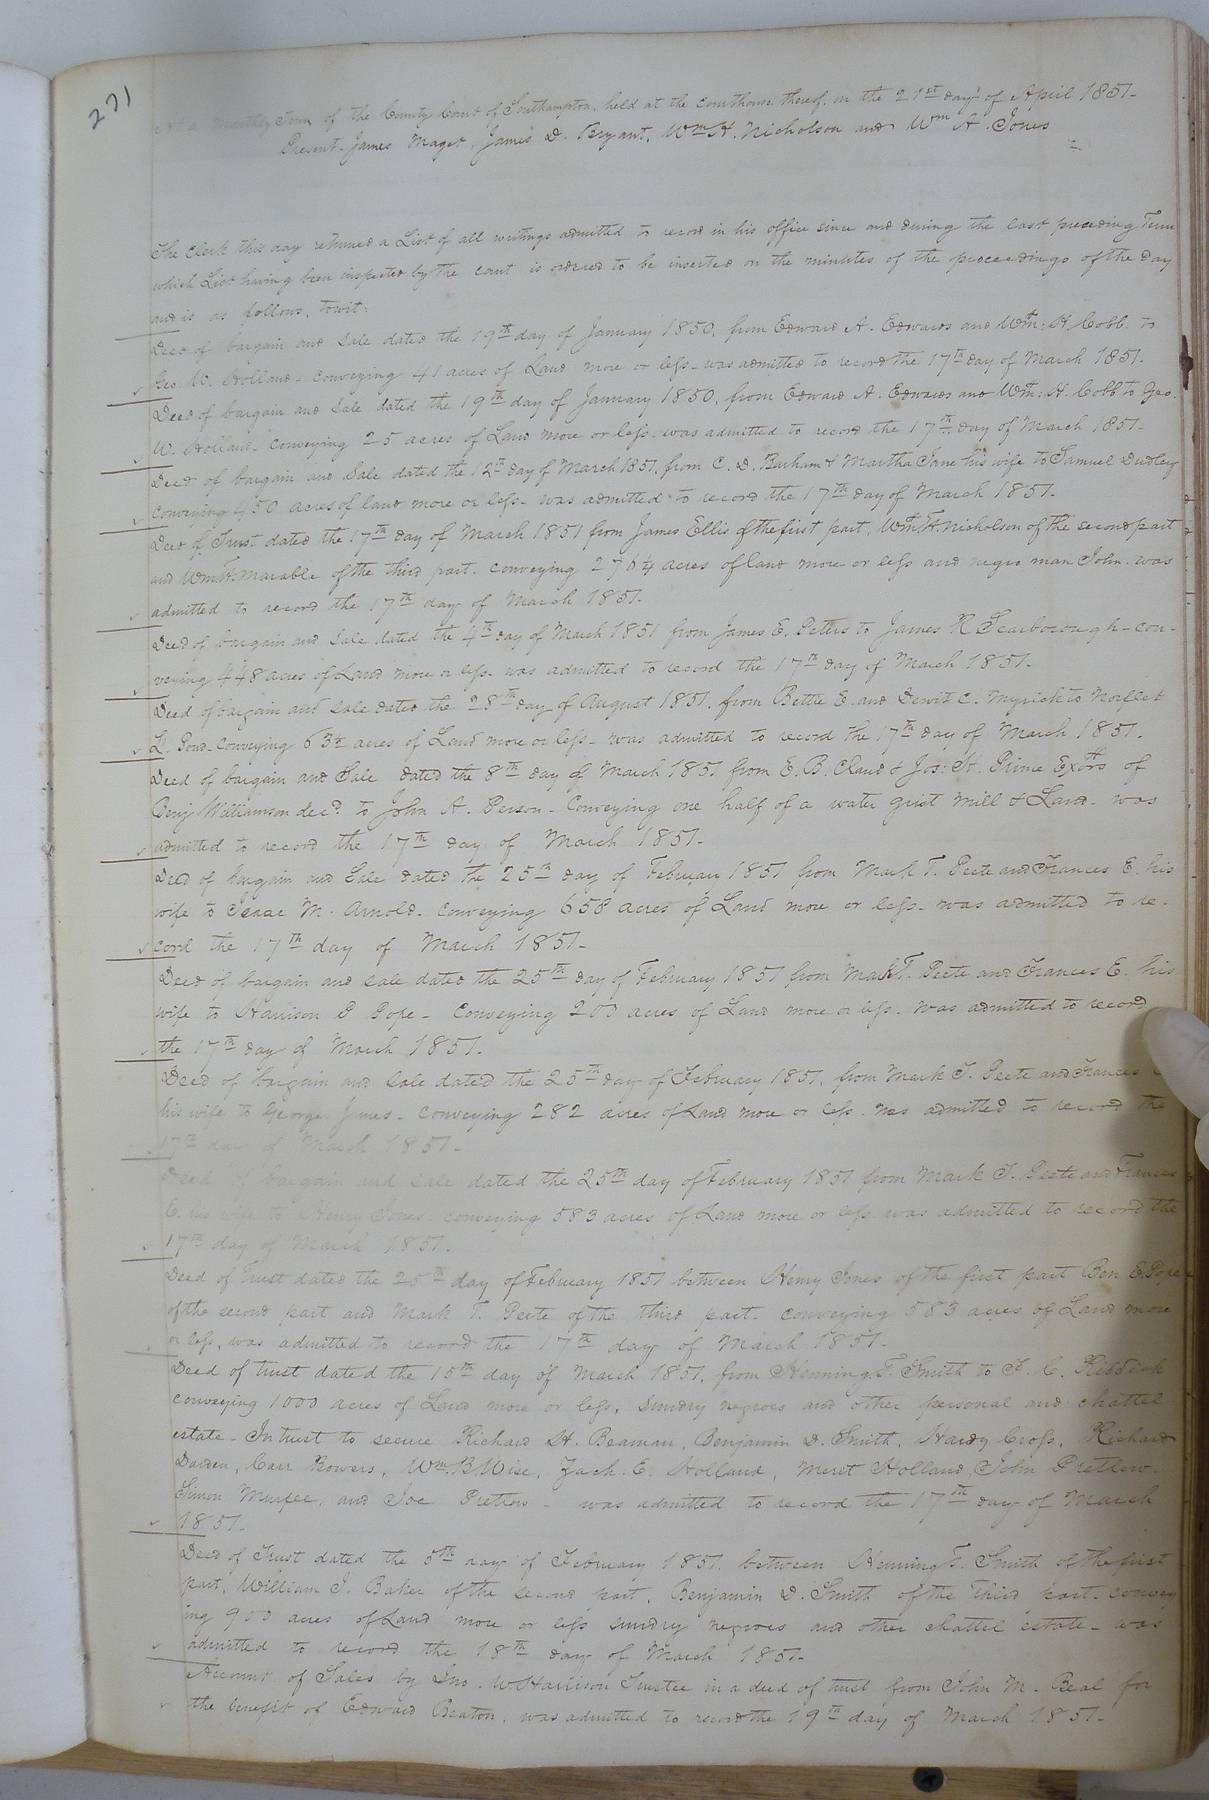 271
At a monthly Term of the County Court of Southampton, held at the courthouse thereof, on the 21st day of April 1851-
Present - James Maget, James D. Bryant, Wm H. Nicholson and Wm A. Jones
The Clerk this day returned a List of all writings admitted to record in his office since and during the last preceding Term
which List having been inspected by the court is ordered to be inserted on the minutes of the proceedings of the day
and is as follows, towit:
Deed of bargain and Sale dated the 19th day of January 1850, from Edward A. Edwards and Wm: H. Cobb to
Geo. W. Holland - conveying 41 acres of Land more or less - was admitted to record the 17th day of March 1851.
Deed of bargain and Sale dated the 19th day of January 1850, from Edward A. Edwards and Wm: H. Cobb to Geo.
W. Holland - conveying 25 acres of Land more or less - was admitted to record the 17th day of March 1851-
Deed of bargain and Sale dated the 12th day of March 1851, from C. D. Barham & Martha Jane his wife to Samuel Dudley
conveying 450 acres of land more or less - was admitted to record the 17th day of March 1851.
Deed of Trust dated the 17th day of March 1851 from James Ellis of the first part, Wm H. Nicholson of the second part
and Wm H. Marable of the third part. conveying acres of land more or less and negro man John - was
admitted to record the 17th day of March 1851.
Deed of bargain and Sale dated the 4th day of March 1851 from James E. Peters to James R Scarborough - con-
veying 448 acres of Land more or less - was admitted to record the 17th day of March 1851-
Deed of bargain and Sale dated the 28th day of August 1851, from Bettie E. and Dewit C. Myrick to Norflet
L. Pond - conveying acres of Land more or less - was admitted to record the 17th day of March 1851.
Deed of bargain and Sale dated the 8th day of March 1851 from E. B. Claud & Jos: H. Prince Exors of
Benj Williamson decd to John A. Person - Conveying one half of a water grist mill & Land - was
admitted to record the 17th day of March 1851-
Deed of bargain and Sale dated the 25th day of February 1851 from Mark T. Peete and Frances E. his
wife to Isaac M. Arnold - conveying 658 acres of Land more or less - was admitted to re-
cord the 17th day of March 1851-
Deed of bargain and sale dated the 25th day of February 1851 from Mark T. Peete and Frances E. his
wife to Harrison P Pope - Conveying 200 acres of Land more or less. was admitted to record
the 17th day of March 1851.
Deed of bargain and sale dated the 25th day of February 1851, from Mark T. Peete and Frances
his wife to George James - conveying 282 acres of Land more or less. was admitted to record the
17th day of March 1851-
Deed of bargain and Sale dated the 25th day of February 1851 from Mark T. Peete and Frances
E. his wife to Henry Jones - conveying 583 acres of Land more or less was admitted to record the
17th day of March 1851.
Deed of Trust dated the 25th day of February 1851 between Henry Jones of the first part Ben E Pope
of the second part and Mark T. Peete of the third part. conveying 583 acres of Land more
or less, was admitted to record the 17th day of March 1851.
Deed of trust dated the 15th day of March 1851, from Henning T. Smith to F. C. Riddick
conveying 1000 acres of Land more or less, Sundry negroes and other personal and chattel
estate - In trust to secure Richard H. Beaman, Benjamin D. Smith, Hardy Cross, Richard
Darden, Carr Bowers, Wm. B Wise, Zach: E. Holland, Merit Holland, John Pretlow.
Simon Murfee, and Joe Pretlow - was admitted to record the 17th day of March
1851-
Deed of Trust dated the 5th day of February 1851, between Henning T. Smith of the first
part, William J. Baker of the second part, Benjamin D. Smith of the third part. convey
ing 950 acres of Land more or less sundry negroes and other chattel estate - was
admitted to record the 18th day of March 1851-
Account of Sales by Jno. W Harrison Trustee in a deed of trust from John M. Beal for
the benefit of Edward Beaton, was admitted to record the 19th day of March 1851-